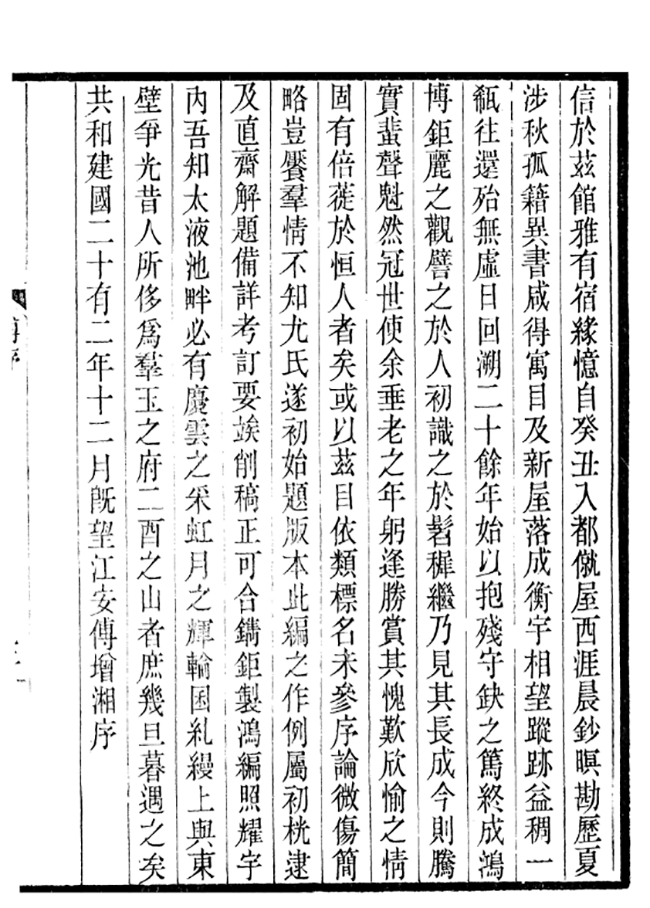 信於茲館雅有宿緣憶自癸丑入都僦屋西涯晨鈔暝勘歷夏
涉秋孤籍異書咸得寓目及新屋落成衡宇相望蹤跡益稠一
瓻往還殆無虛日回溯二十餘年始以抱殘守缺之篤終成鴻
博鉅麗之觀譬之於人初識之於髫稺繼乃見其長成今則騰
實蜚聲魁然冠世使余垂老之年躬逢勝賞其愧歎欣愉之情
固有倍蓰於恒人者矣或以茲目依類標名未參序論微傷簡
略豈饜羣情不知尤氏遂初始題版本此編之作例屬初桄逮
及直齋解題備詳考訂要竢削稿正可合鐫鉅製鴻編照耀宇
內吾知太液池畔必有慶雲之采虹月之輝輪囷糺縵上與東
壁爭光昔人所侈爲羣玉之府二酉之山者庶幾旦暮遇之矣
共和建國二十有二年十二月旣望江安傅增湘序